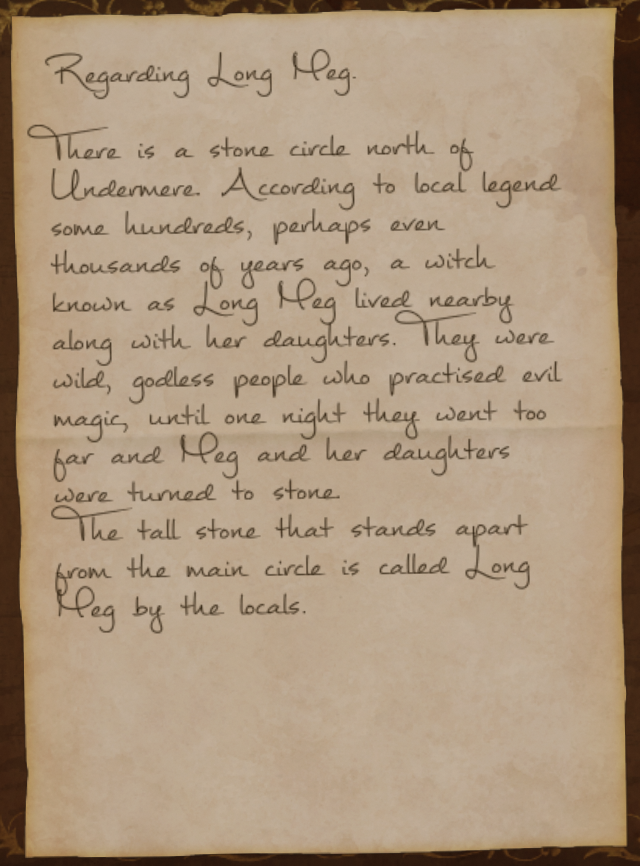 Regarding Long Meg.
There is a stone circle north of
Undermere. According to local legend
some hundreds, perhaps even
thousands of years ago, a witch
known as Long Meg lived nearby
along with her daughters. They were
wild, godless people who practised evil
magic, until one night they went too
far and Meg and her daughters
were turned to stone.
The tall stone that stands apart
from the main circle is called Long
Meg by the locals.